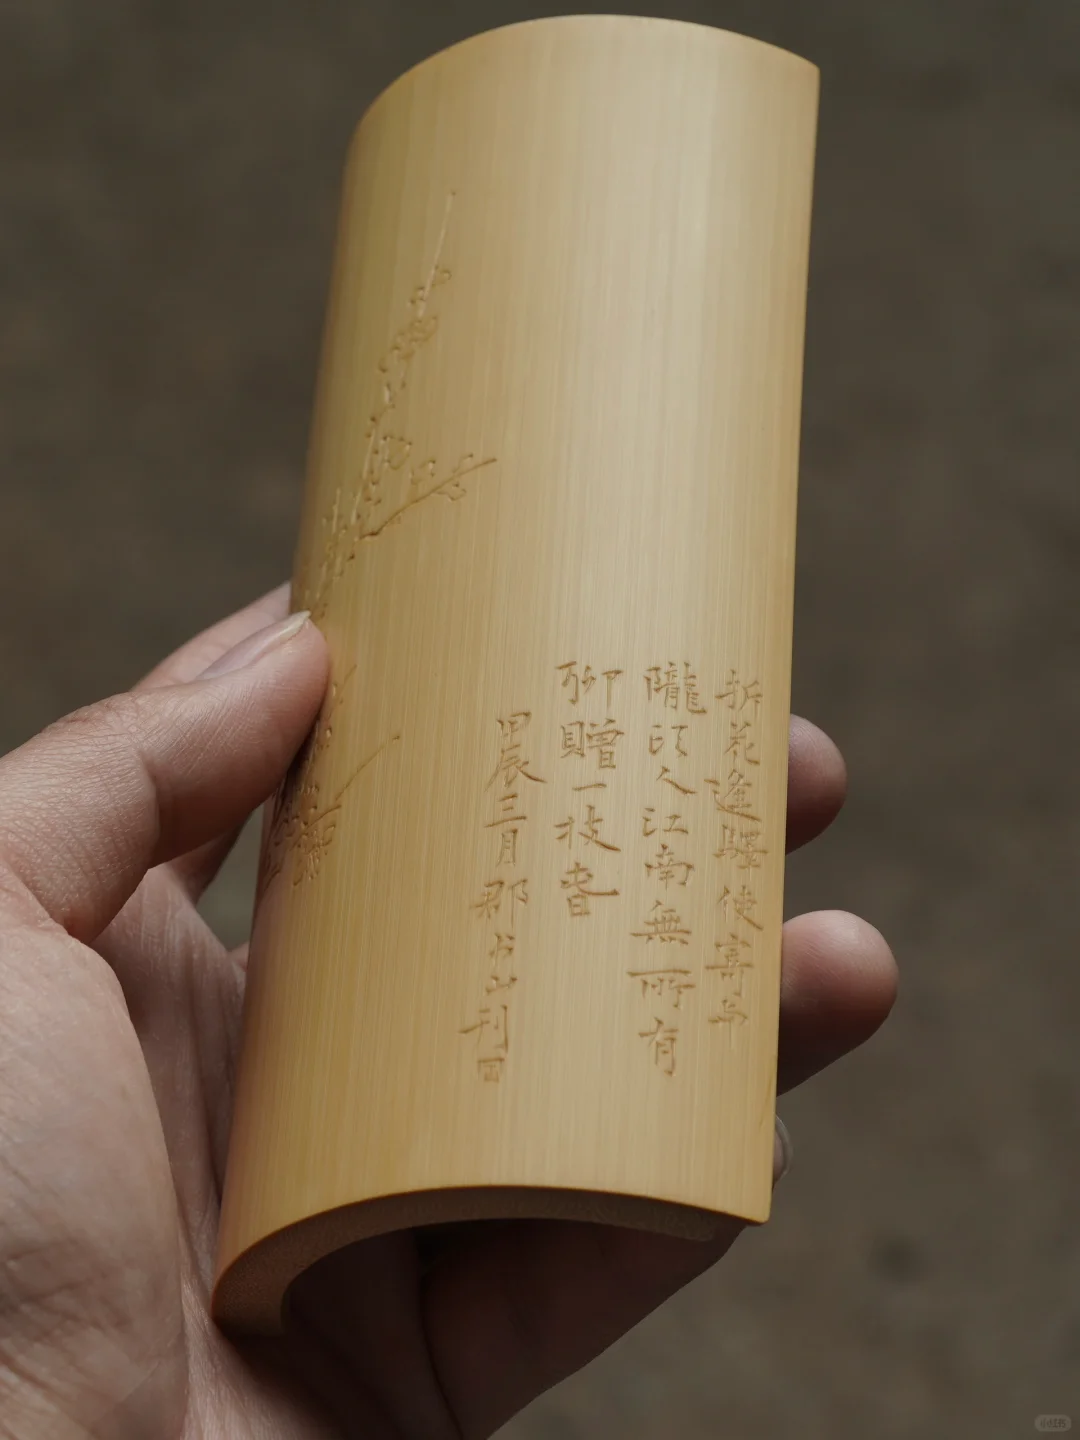 折花逢驛使寄与
隴頭人江南無所有
聊贈一枝春
甲辰三月郡山刊
小红书